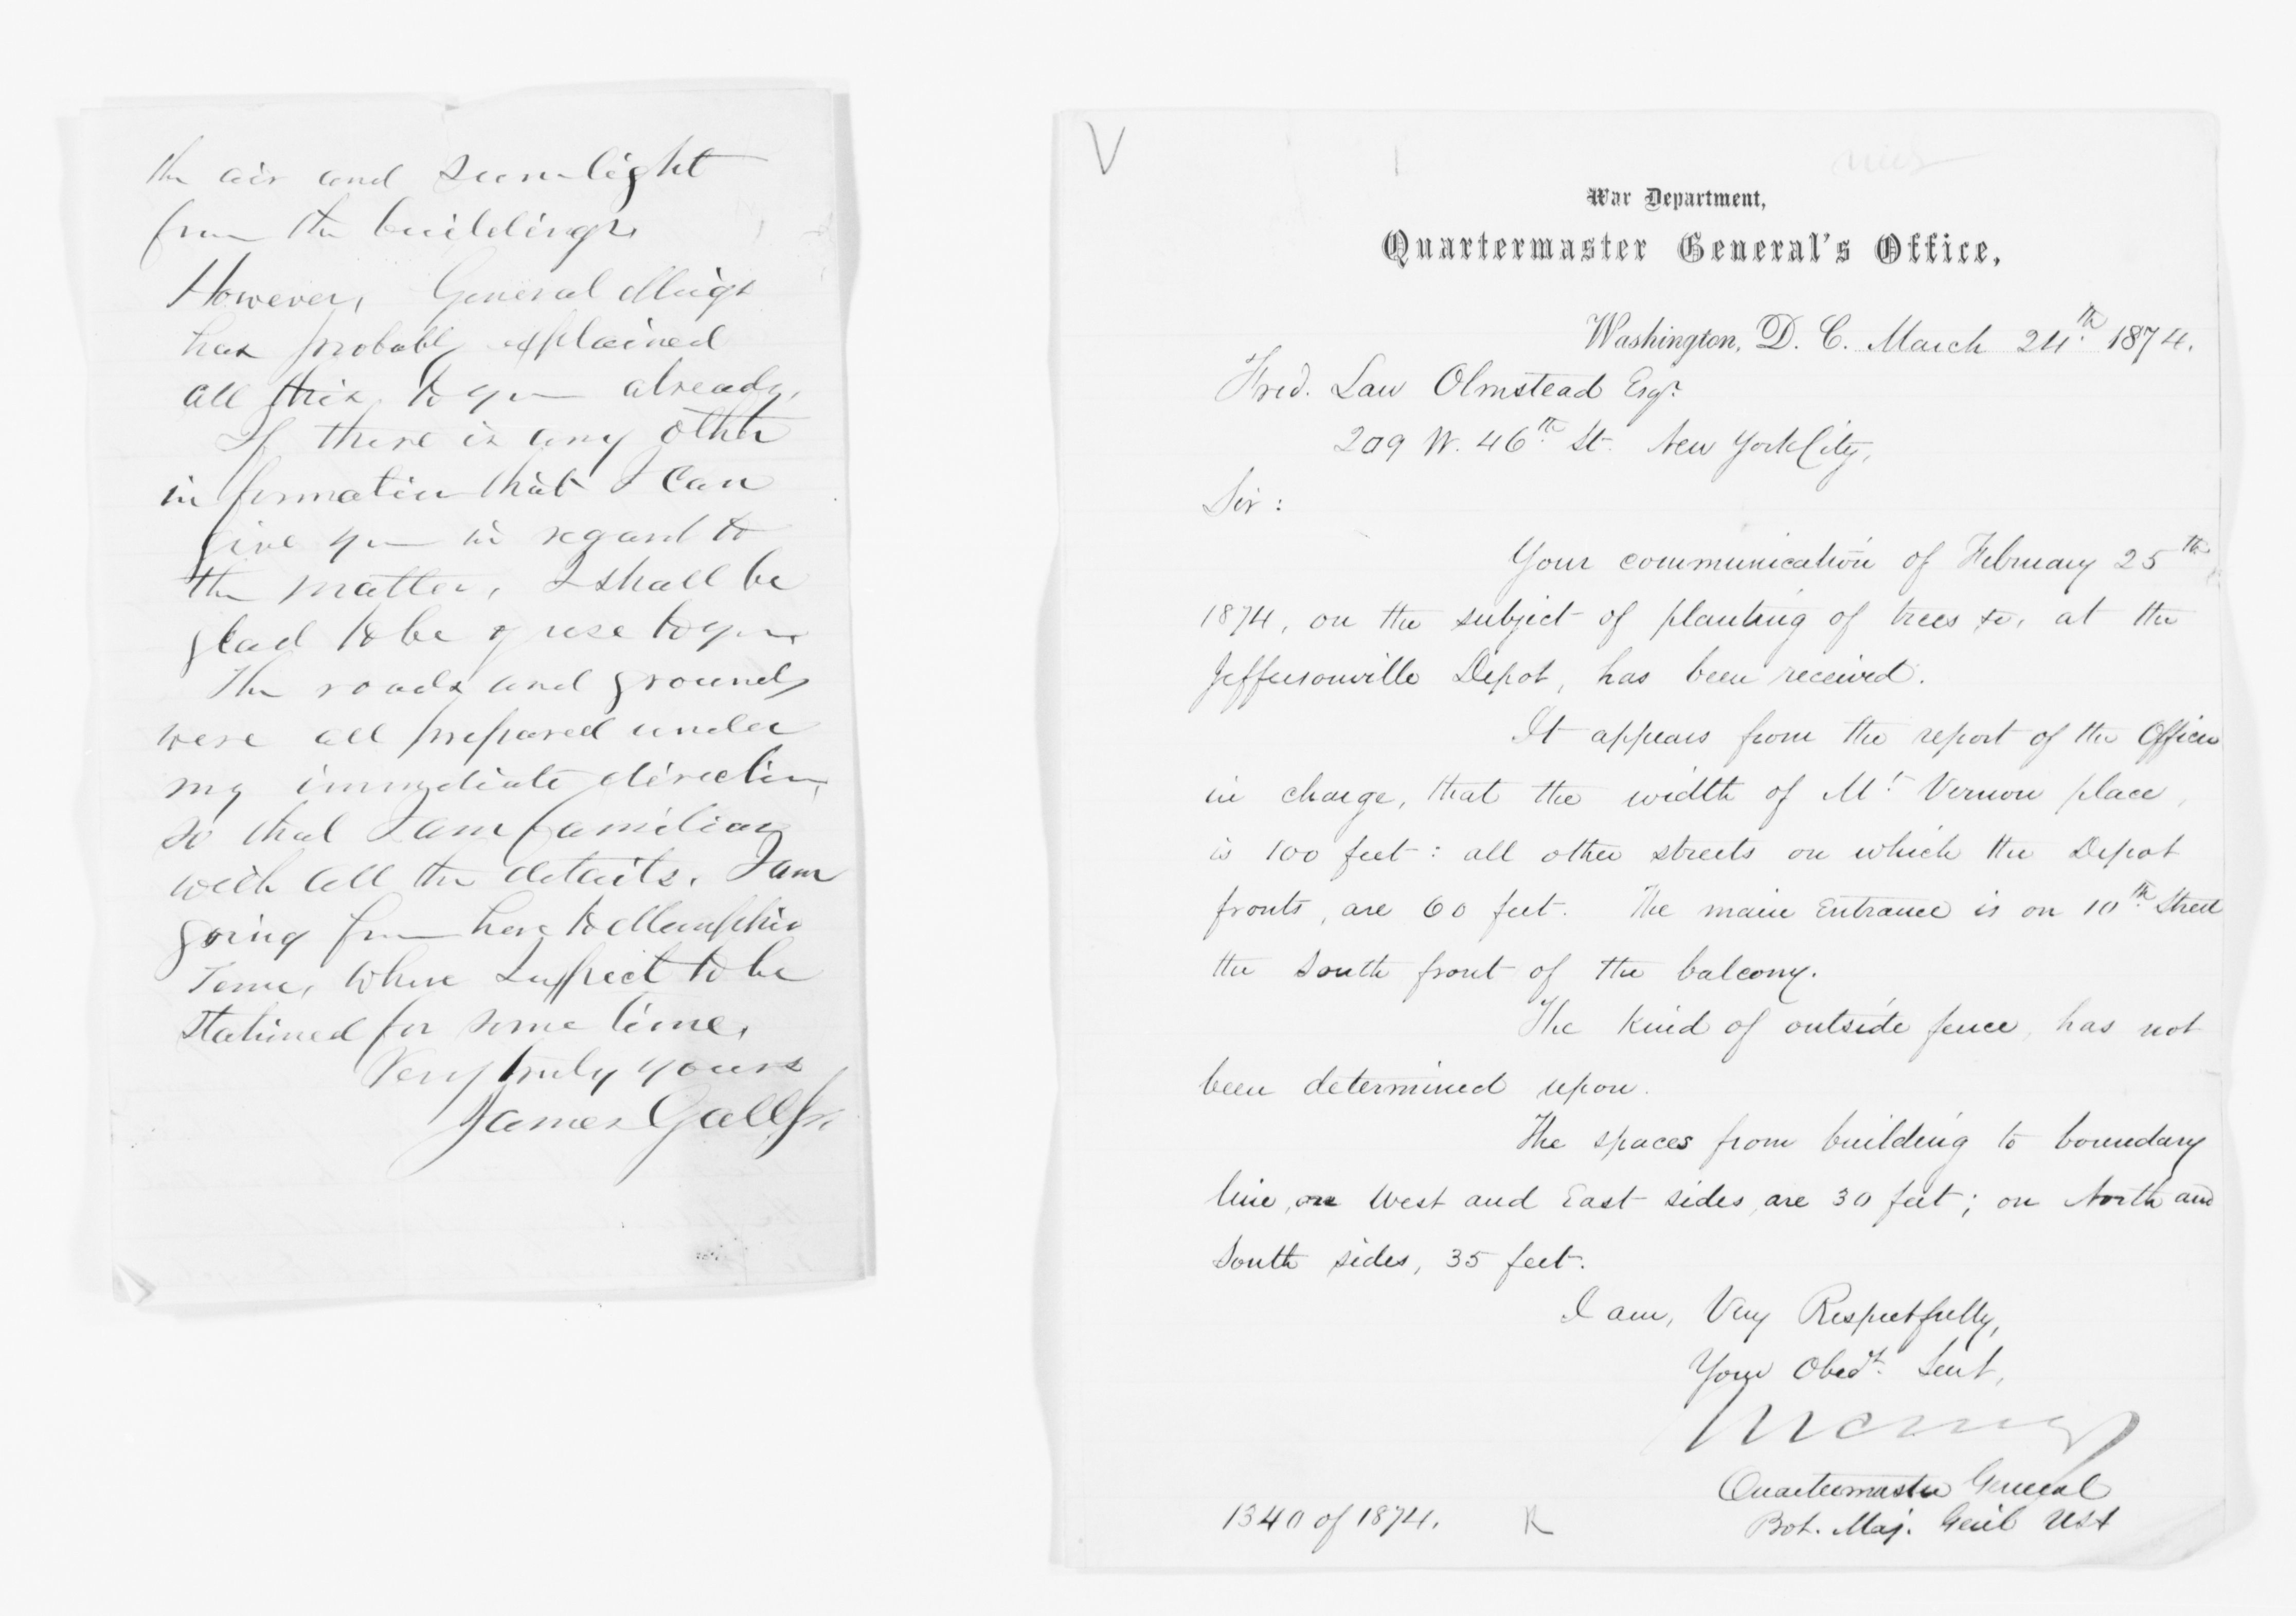 the air and sunlight
from the buildings.
However, General Meigs
has probably explained
all this to you already.
If there is any other
information that I can
give you in regard to
the matter, I shall be
glad to be of use to you.
The roads and grounds
were all prepared under
my immediate direction,
so that I am familiar
with all the details. I am
going from here to Memphis
Tenn, where I expect to be
stationed for some time.
Very truly yours
James Gall Jr.
V
War Department,
Quartermaster General's Office,
Washington, D. C. March 24th 1874.
Fred. Law Olmstead Esqr.
209 W. 46th St. New York City,
Sir:
Your communication of February 25th
1874, on the subject of planting of trees &c, at the
Jeffersonville Depot, has been received.
It appears from the report of the Officer
in charge, that the width of Mt. Vernon place,
is 100 feet: all other streets on which the Depot
fronts, are 60 feet. The main Entrance is on 10th Street
the South front of the balcony.
The kind of outside fence, has not
been determined upon.
The spaces from building to boundary
line, on West and East sides, are 30 feet; on North and
South sides, 35 feet.
I am, Very Respectfully,
Your Obedt. Servt,
Quartermaster General
Bvt. Maj. Genl USA
1340 of 1874. R